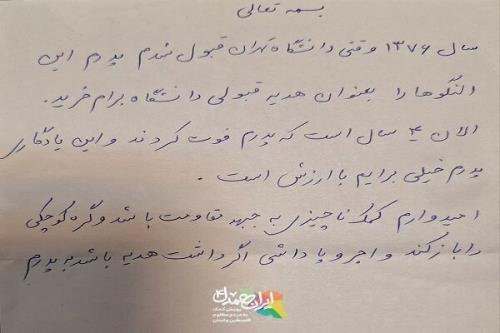 بسمه تعالی
سال ۱۳۷۶ وقتی دانشگاه تهران قبول شدم پدرم این
النگوها را بعنوان هدیه قبولی دانشگاه برام خرید.
الان ۴ سال است که پدرم فوت کردند و این یادگاری
پدرم خیلی برایم با ارزش است.
امیدوارم کمک ناچیزی به جبهه مقاومت باشد و گره کوچکی
را باز کند و اجر و پاداشی اگر داشت هدیه باشد به پدرم
ایران همدل
پویش کمک
به مردم مظلوم
فلسطین و لبنان